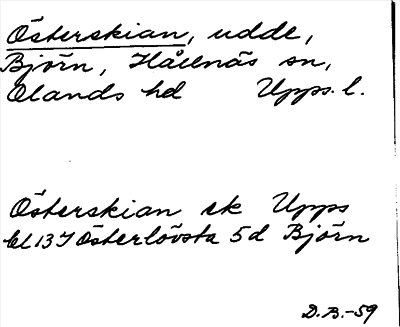 Österskian, udde,
Björn, Hållnäs sn,
Olands hd Upps. l.
Österskian sk Upps
bl 13 I Österlövsta 5d Björn
D.B.-59